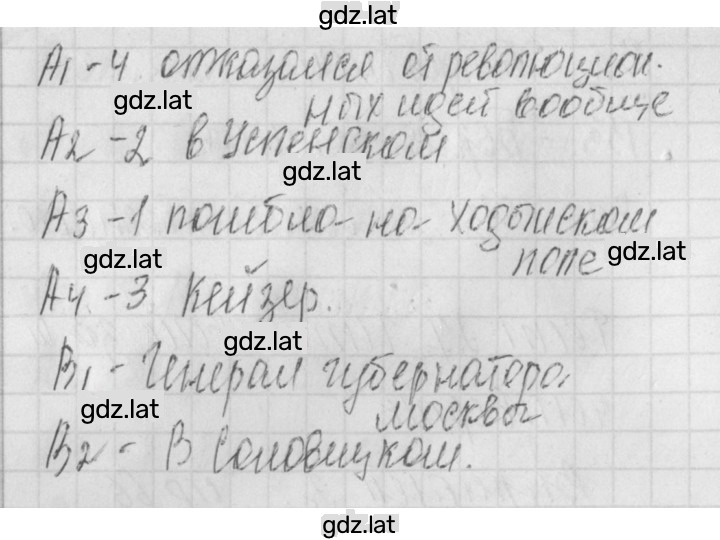 gdz.lat
А1 - 4 отказался от революцион.
gdz.lat
ных идей вообще
А2 - 2 в Успенском
gdz.lat
А3 - 1 погибло на Ходынском
gdz.lat
gdz.lat
поле
А4 - 3 Кейзер.
gdz.lat
В1 - Генерал губернатора
gdz.lat
москвы
В2 - В Соловицком.
gdz.lat